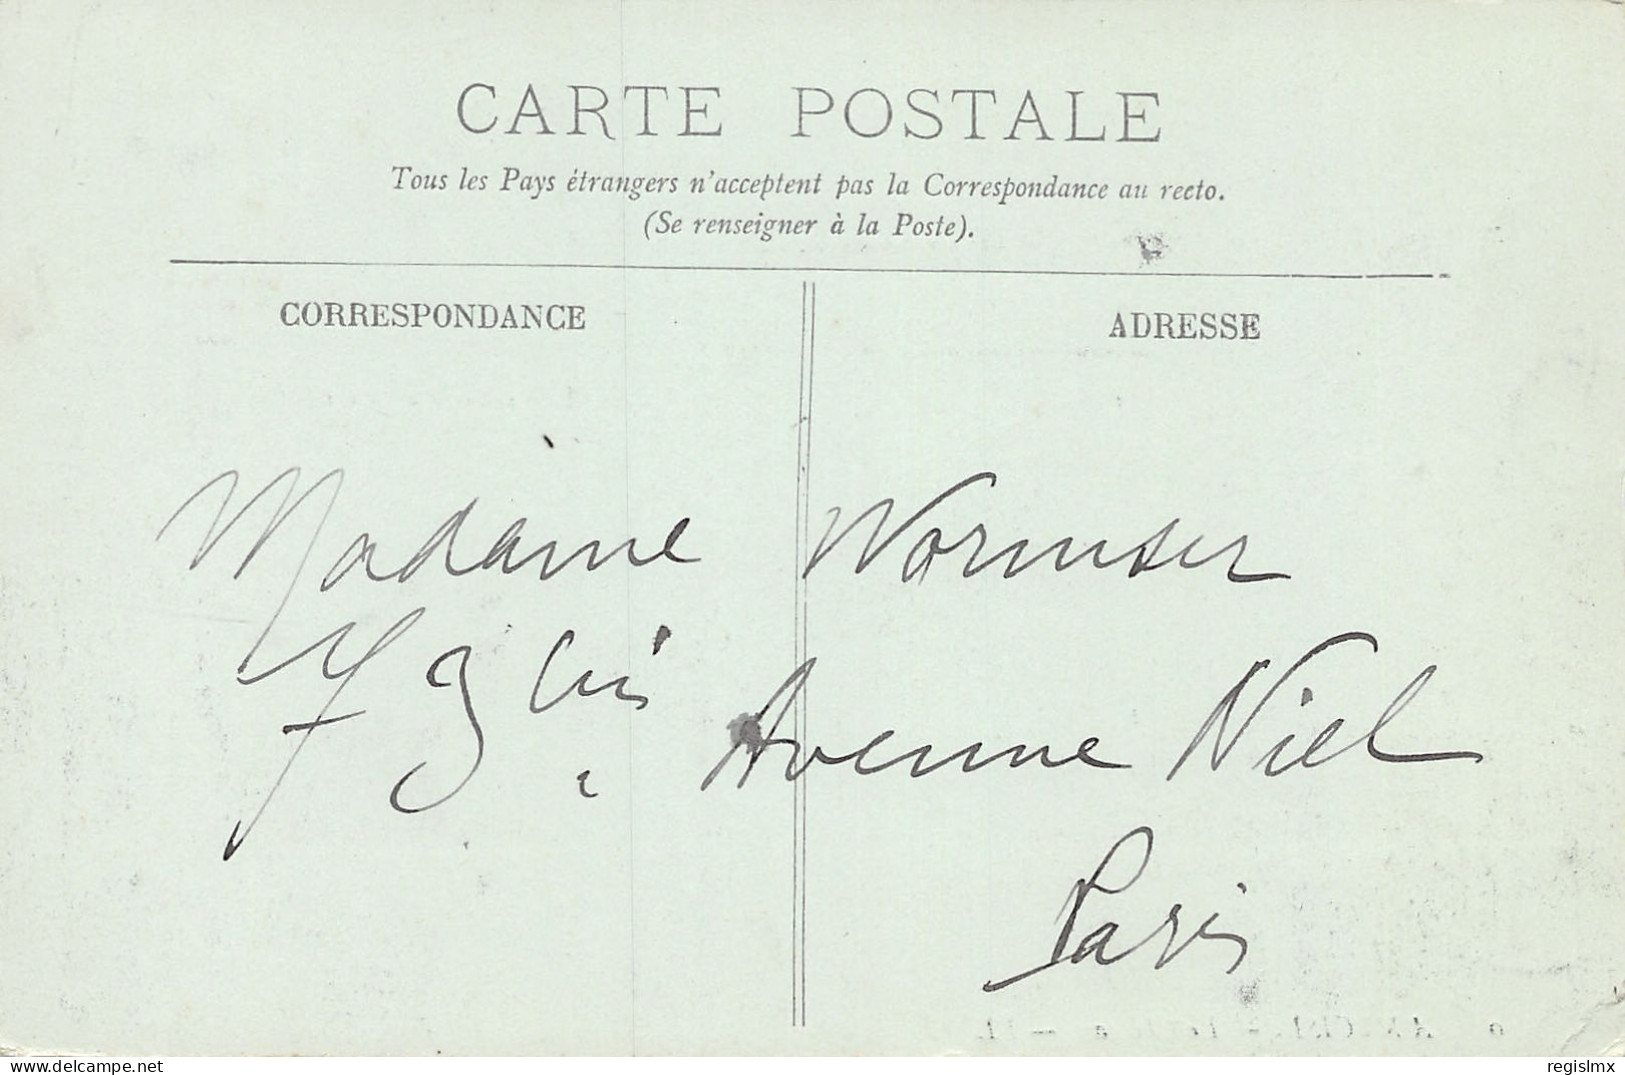 CARTE POSTALE
Tous les Pays étrangers n'acceptent pas la Correspondance au recto.
(Se renseigner à la Poste).
CORRESPONDANCE
ADRESSE
Madame Wormser
73 bis, Avenue Niel
Paris
delcampe.net
regislmx